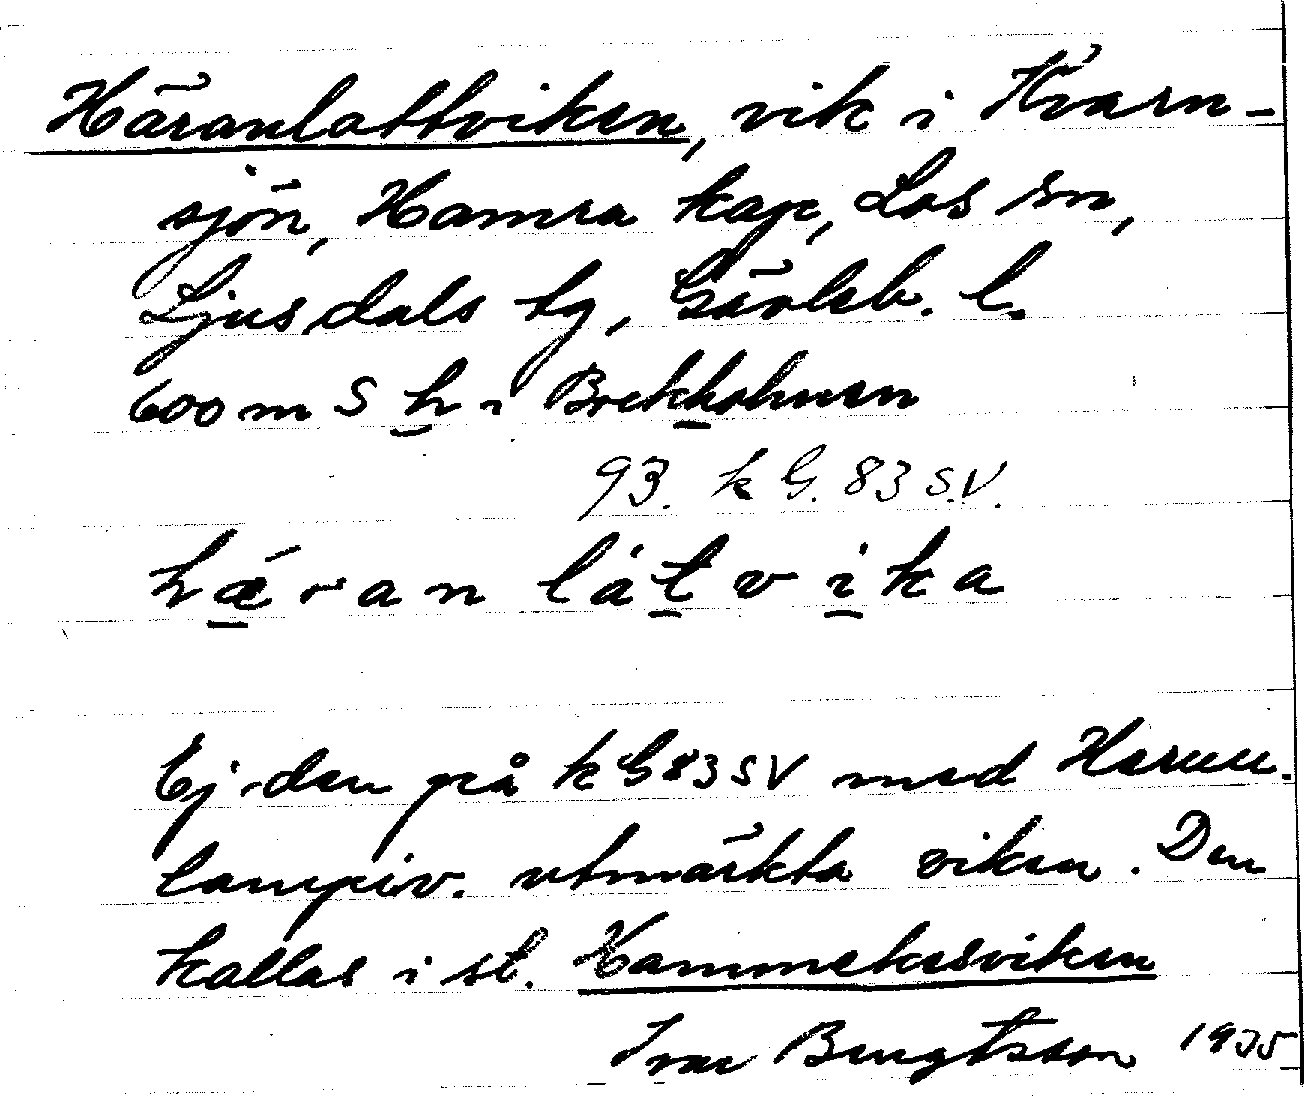 Häranlattviken, vik i Kvarn-
sjön, Hamra kap, Los sn,
Ljusdals tg, Gävleb. l.
600 m S h i Brekkholmen
93. k G. 83 S.V.
hæran låtvika
Ej den på k G 83 SV med
lampiv. utmärkta viken. Den
kallas i st. Hammekesviken
Ivar Bengtsson 1935